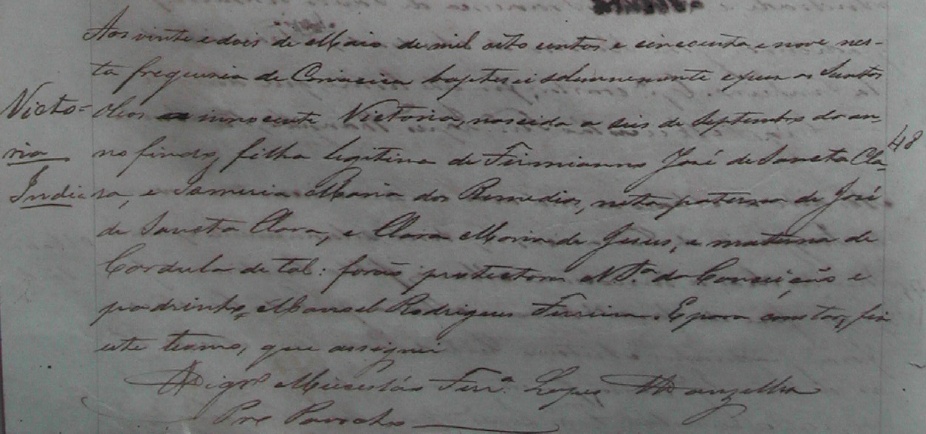 Aos vinte e dois de Maio de mil oito centos e cincoenta e nove nes-
ta freguesia de baptisei solennemente e puz os Santos
Victo= Oleos a innocente Victoria, nascida a seis de Septembro do an-
ria no findo, filha legitima de Firmianno José de Sancta Cla- 48
India ra, e Maria dos Remedios, neta paterna de José
de Sancta Clara, e Clara Maria de Jesus, e materna de
Cordula de tal: forão protectora N. Sª. da Conceição e
padrinho, Manoel Rodrigues Ferreira. E para constar, fiz
este termo, que assignei
Ferrª. Lopes
Pro Parocho